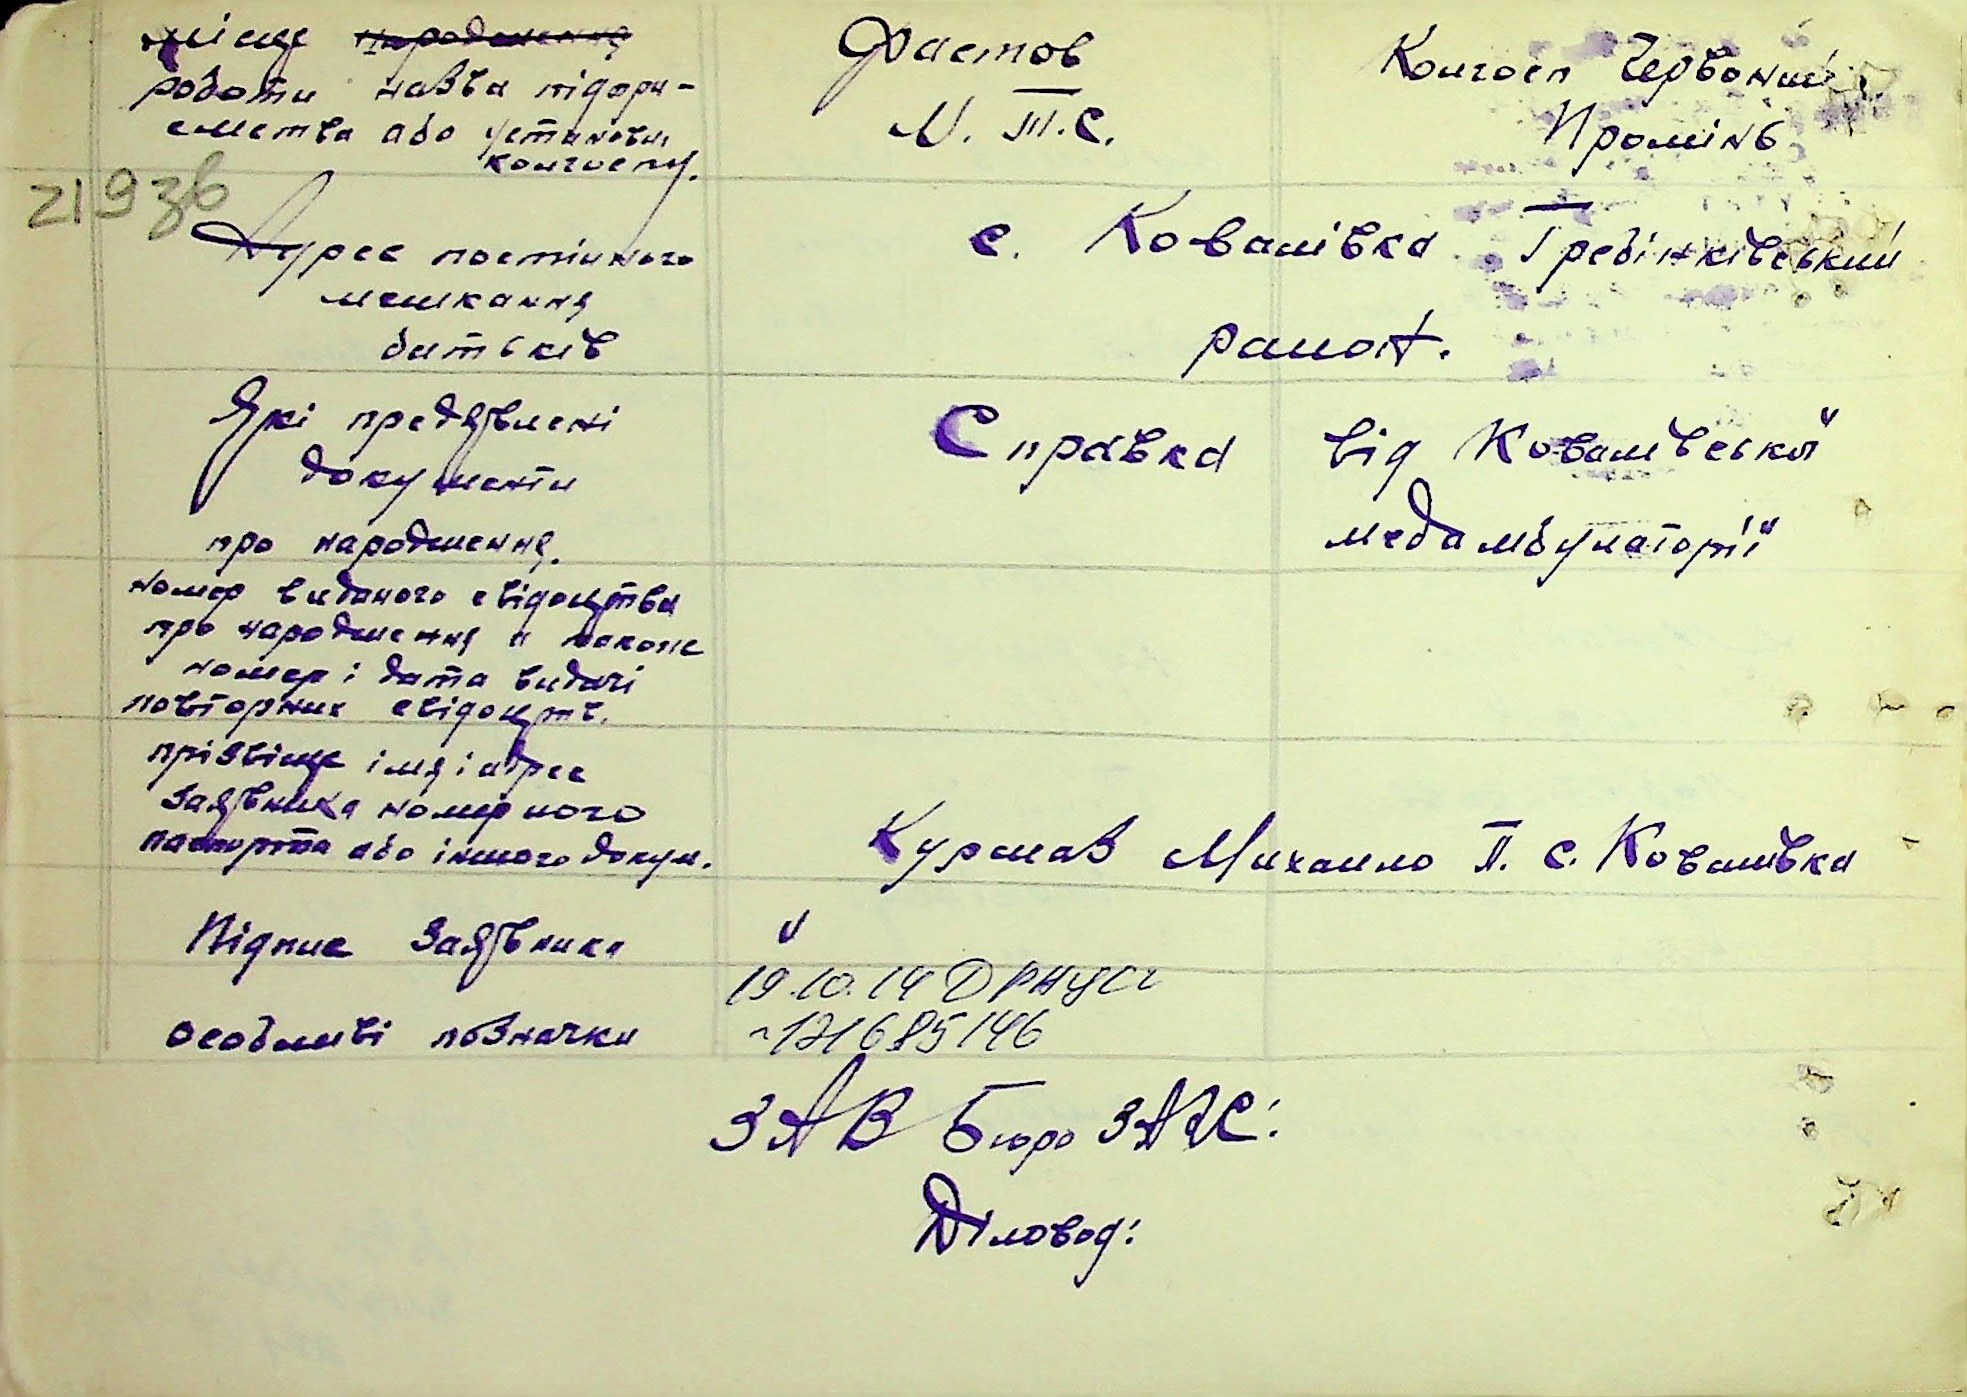 місце народження Фастов Колгосп Червоний
роботи назва підпри- М. Ш. С. Промінь
ємства або установи,
колгоспу.
219зв
Адрес постійного с. Ковалівка Гребінківський
мешкання
батьків район.
Які предявлені Справка від Ковалівської
документи
про народження. медамбулаторії
номер виданого свідоцтва
про народження а також
номер і дата видачі
повторних свідоцтв.
прізвіще імя і адрес
заявника номер його
паспорта або іншого докум. Курмаз Михайло П. с. Ковалівка
Підпис Заявника
19.10.14
особливі позначки 121685146
ЗАВ Бюро ЗАГС:
Діловод: